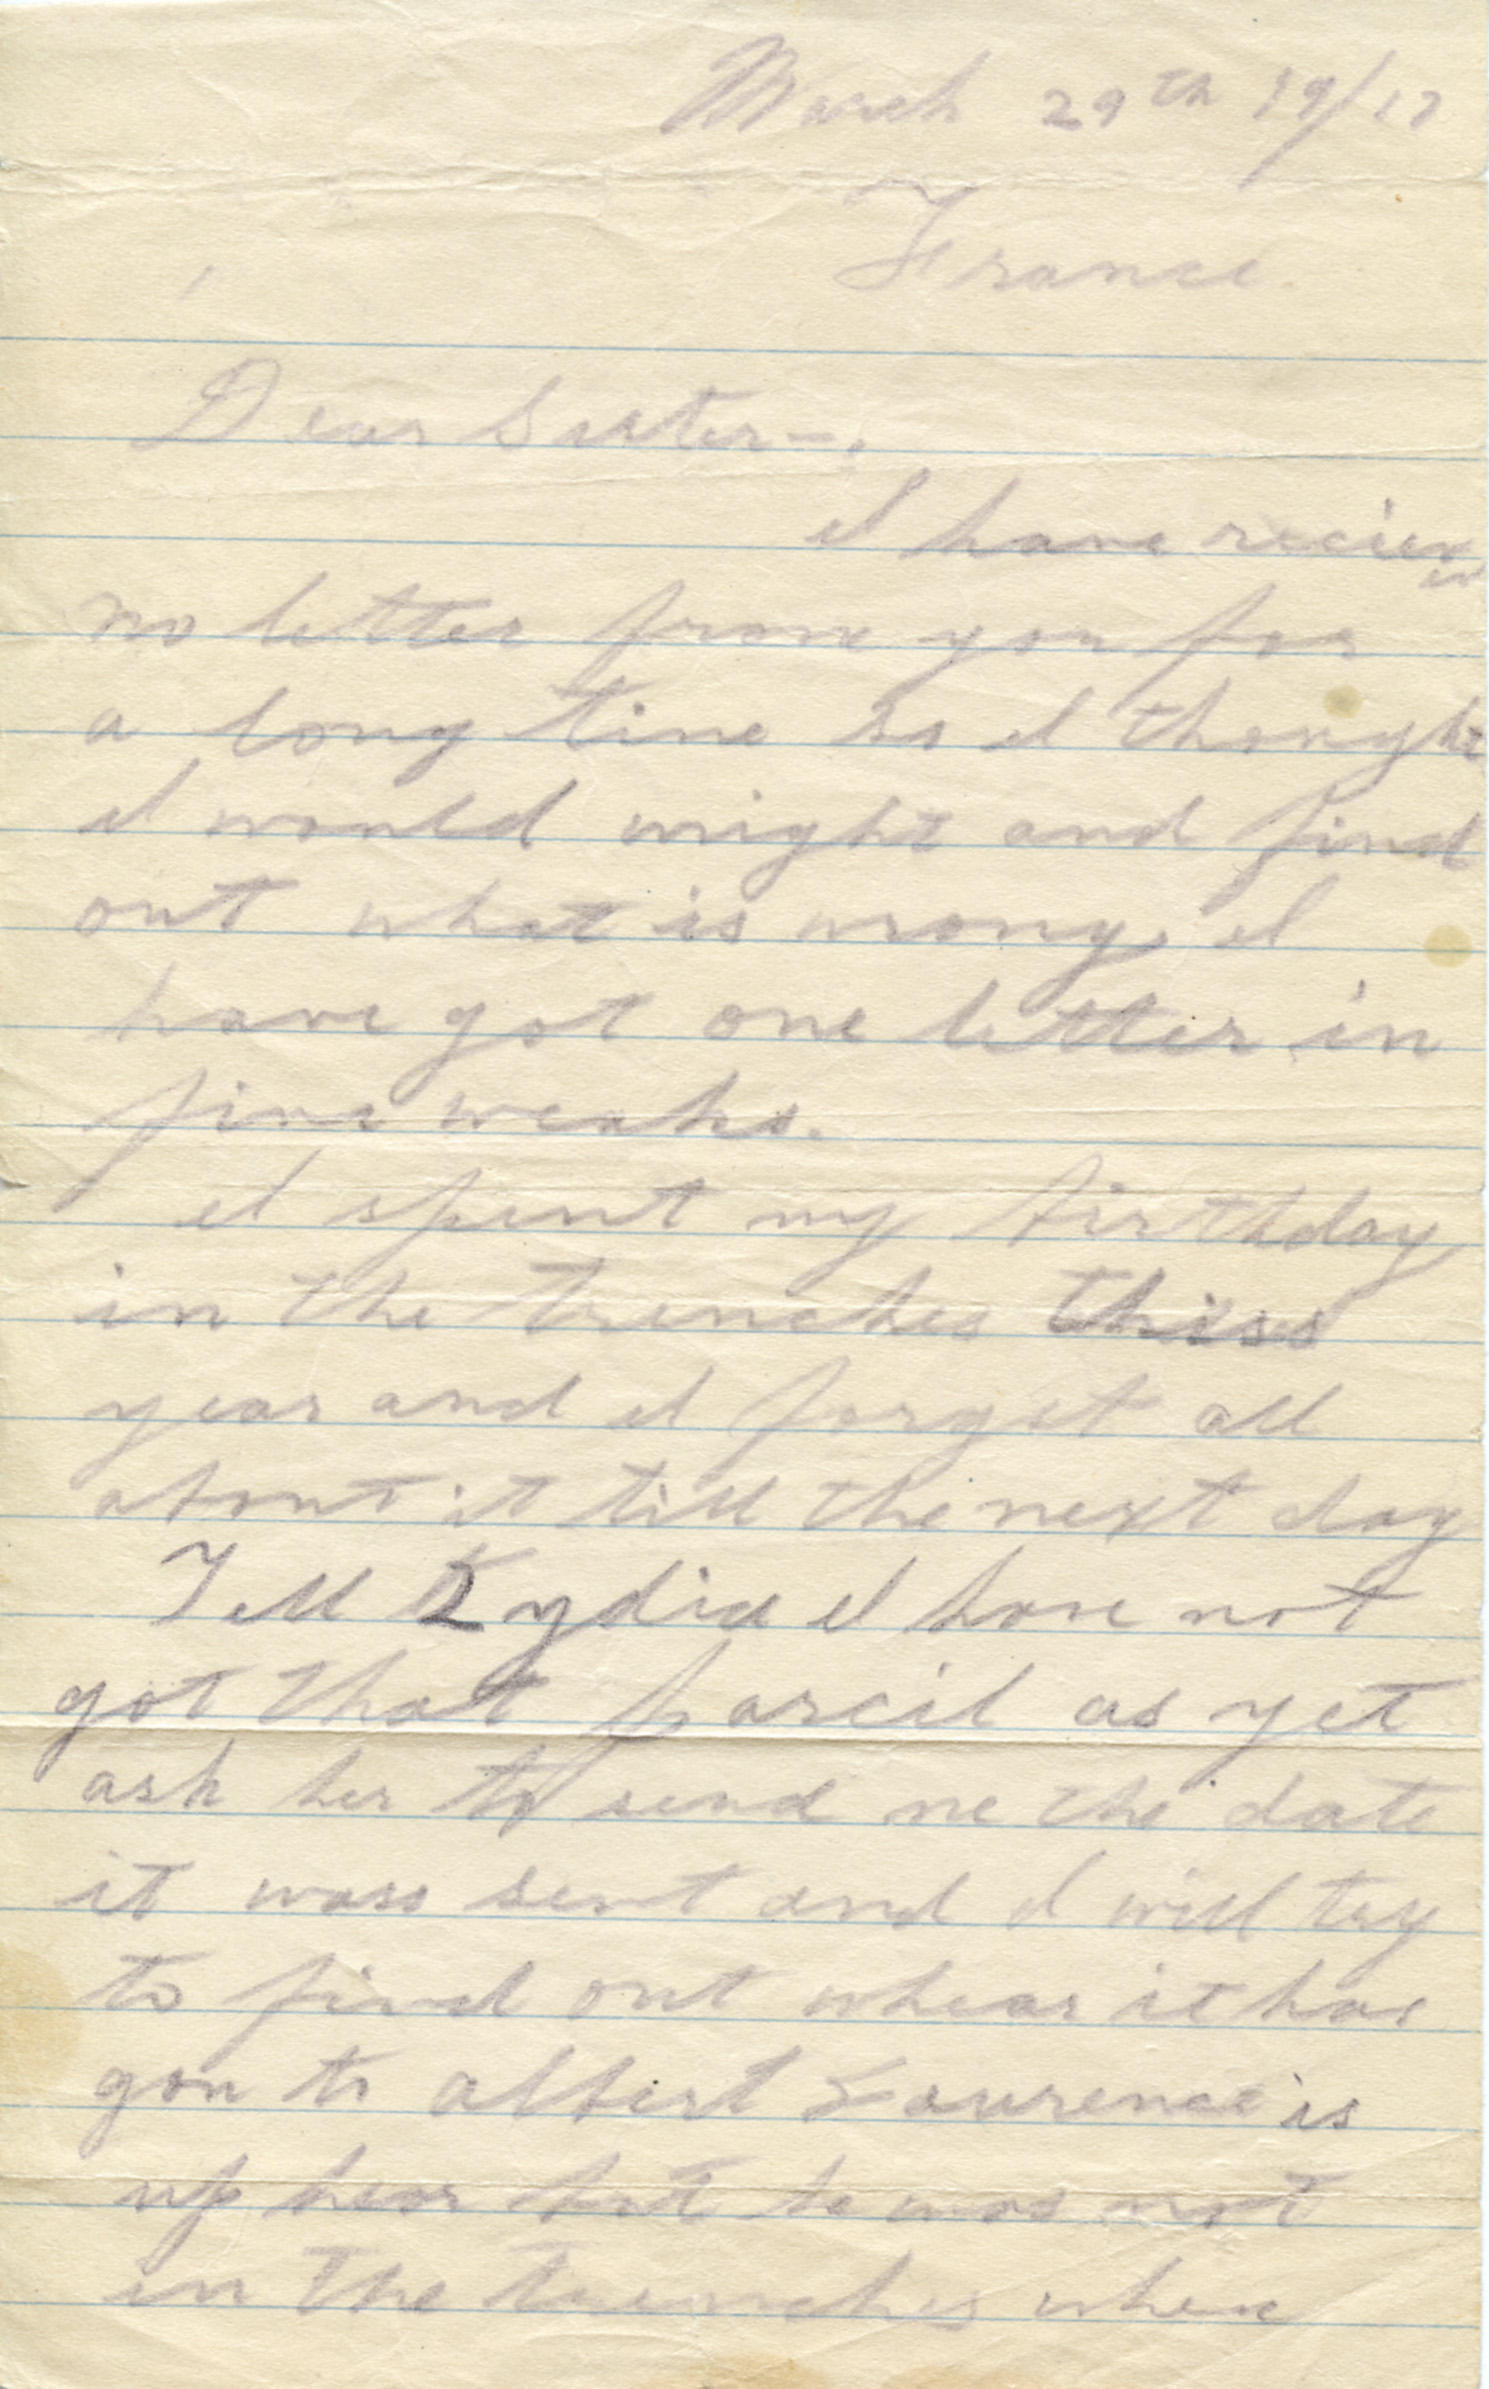 March 29th 19/17
France.
Dear Sister-,
I have reciev
ed
no letter from you for
a long time so I thought
I would wright and find
out what is wrong, I
have got one letter in
five weaks.
I spent my birthday
in the trenches thiss
year and I forget all
about it till the next day
Tell Lydia I have not
got that parcil as yet
ask her to send me the date
it wass sent and I will try
to find out whear it has
gon to albert Lawrence is
up hear but he was not
in the trenches when